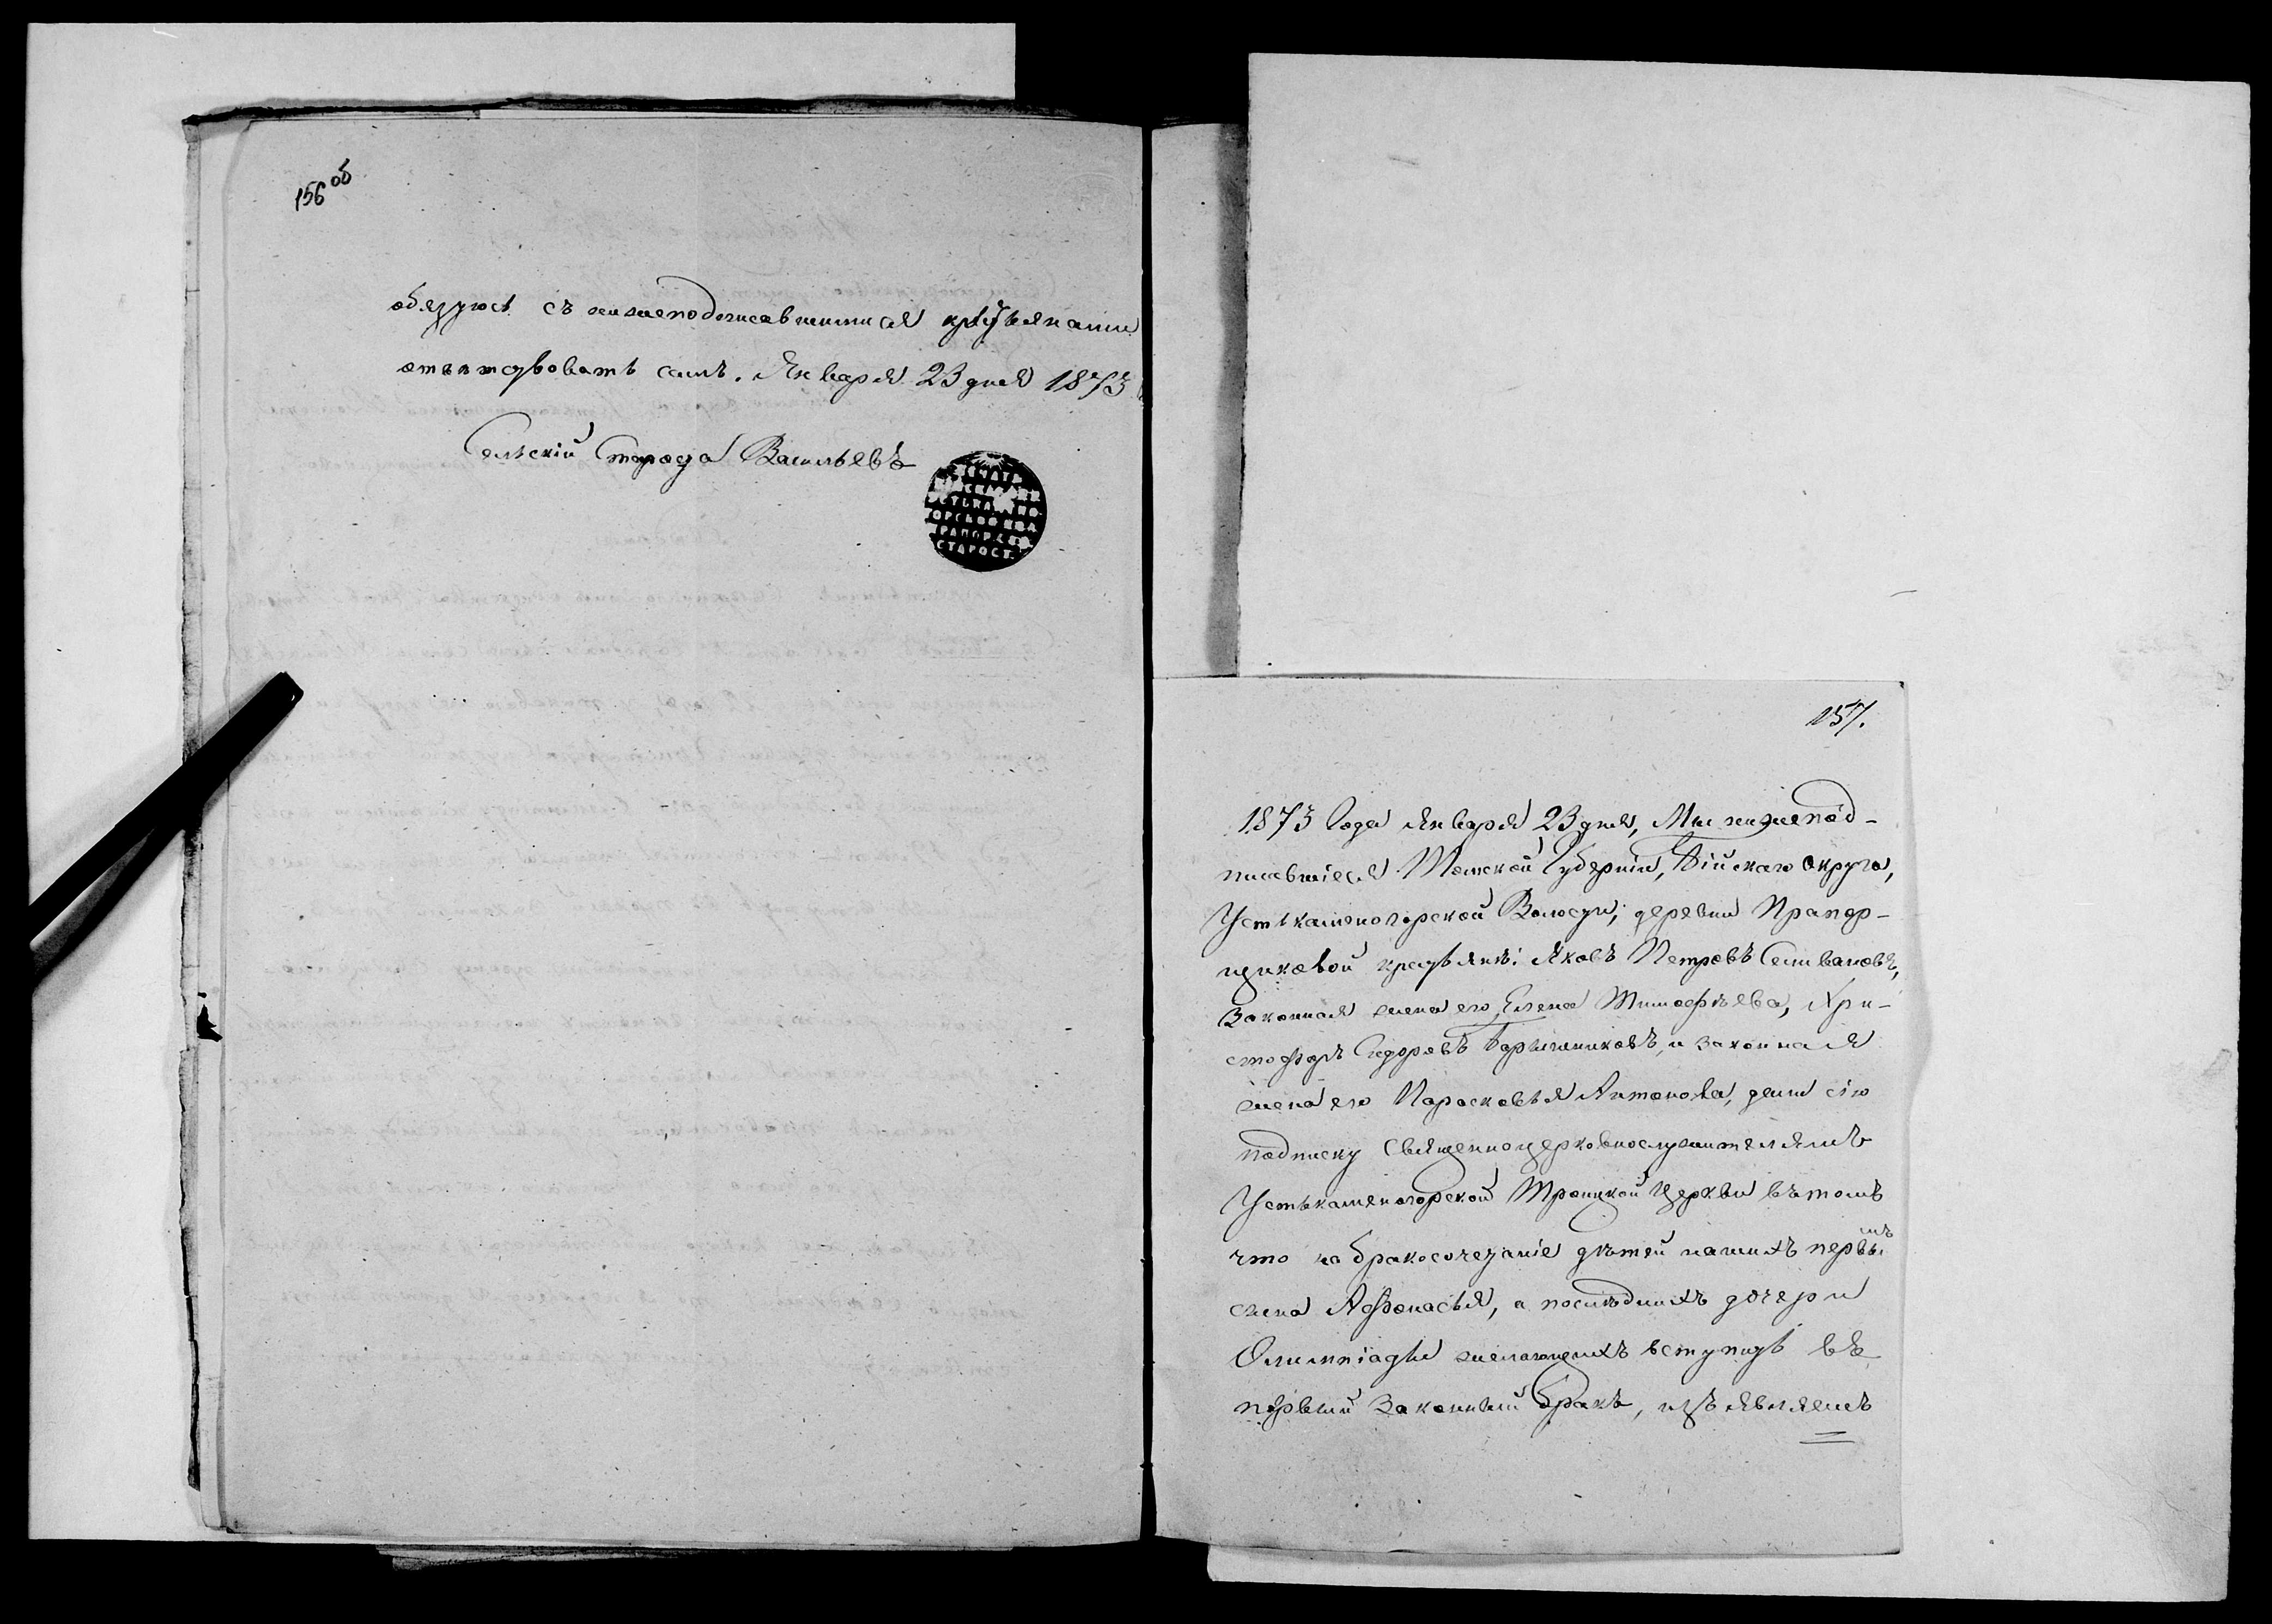 156 об
обязуюсь съ нижеподписавшимися крестьянами
отвѣтствовать самъ. Января 23 дня 1873
Сельскій Староста Васильевъ
СТАРОСТ.
157.
1873 Года Января 23 дня, Мы нижепод-
писавшіеся Томской Губерніи, Бійскаго Округа,
Устькаменогорской Волости, деревни Прапор-
щиковой крестьянѣ: Яковъ Петровъ Селивановъ,
Законная жена его, Елена Тимофѣева, Хри-
стофоръ Сидоровъ Барышниковъ, и законная
жена его Парасковья Антонова, дали сію
подписку Священноцерковнослужителямъ
Устькаменогорской Троицкой Церкви въ томъ
что на бракосочетаніе дѣтей нашихъ первыхъ
сына Афонасья, а послѣднихъ дочери
Олимпіады желающихъ вступить въ
первый Законный бракъ, изъявляемъ